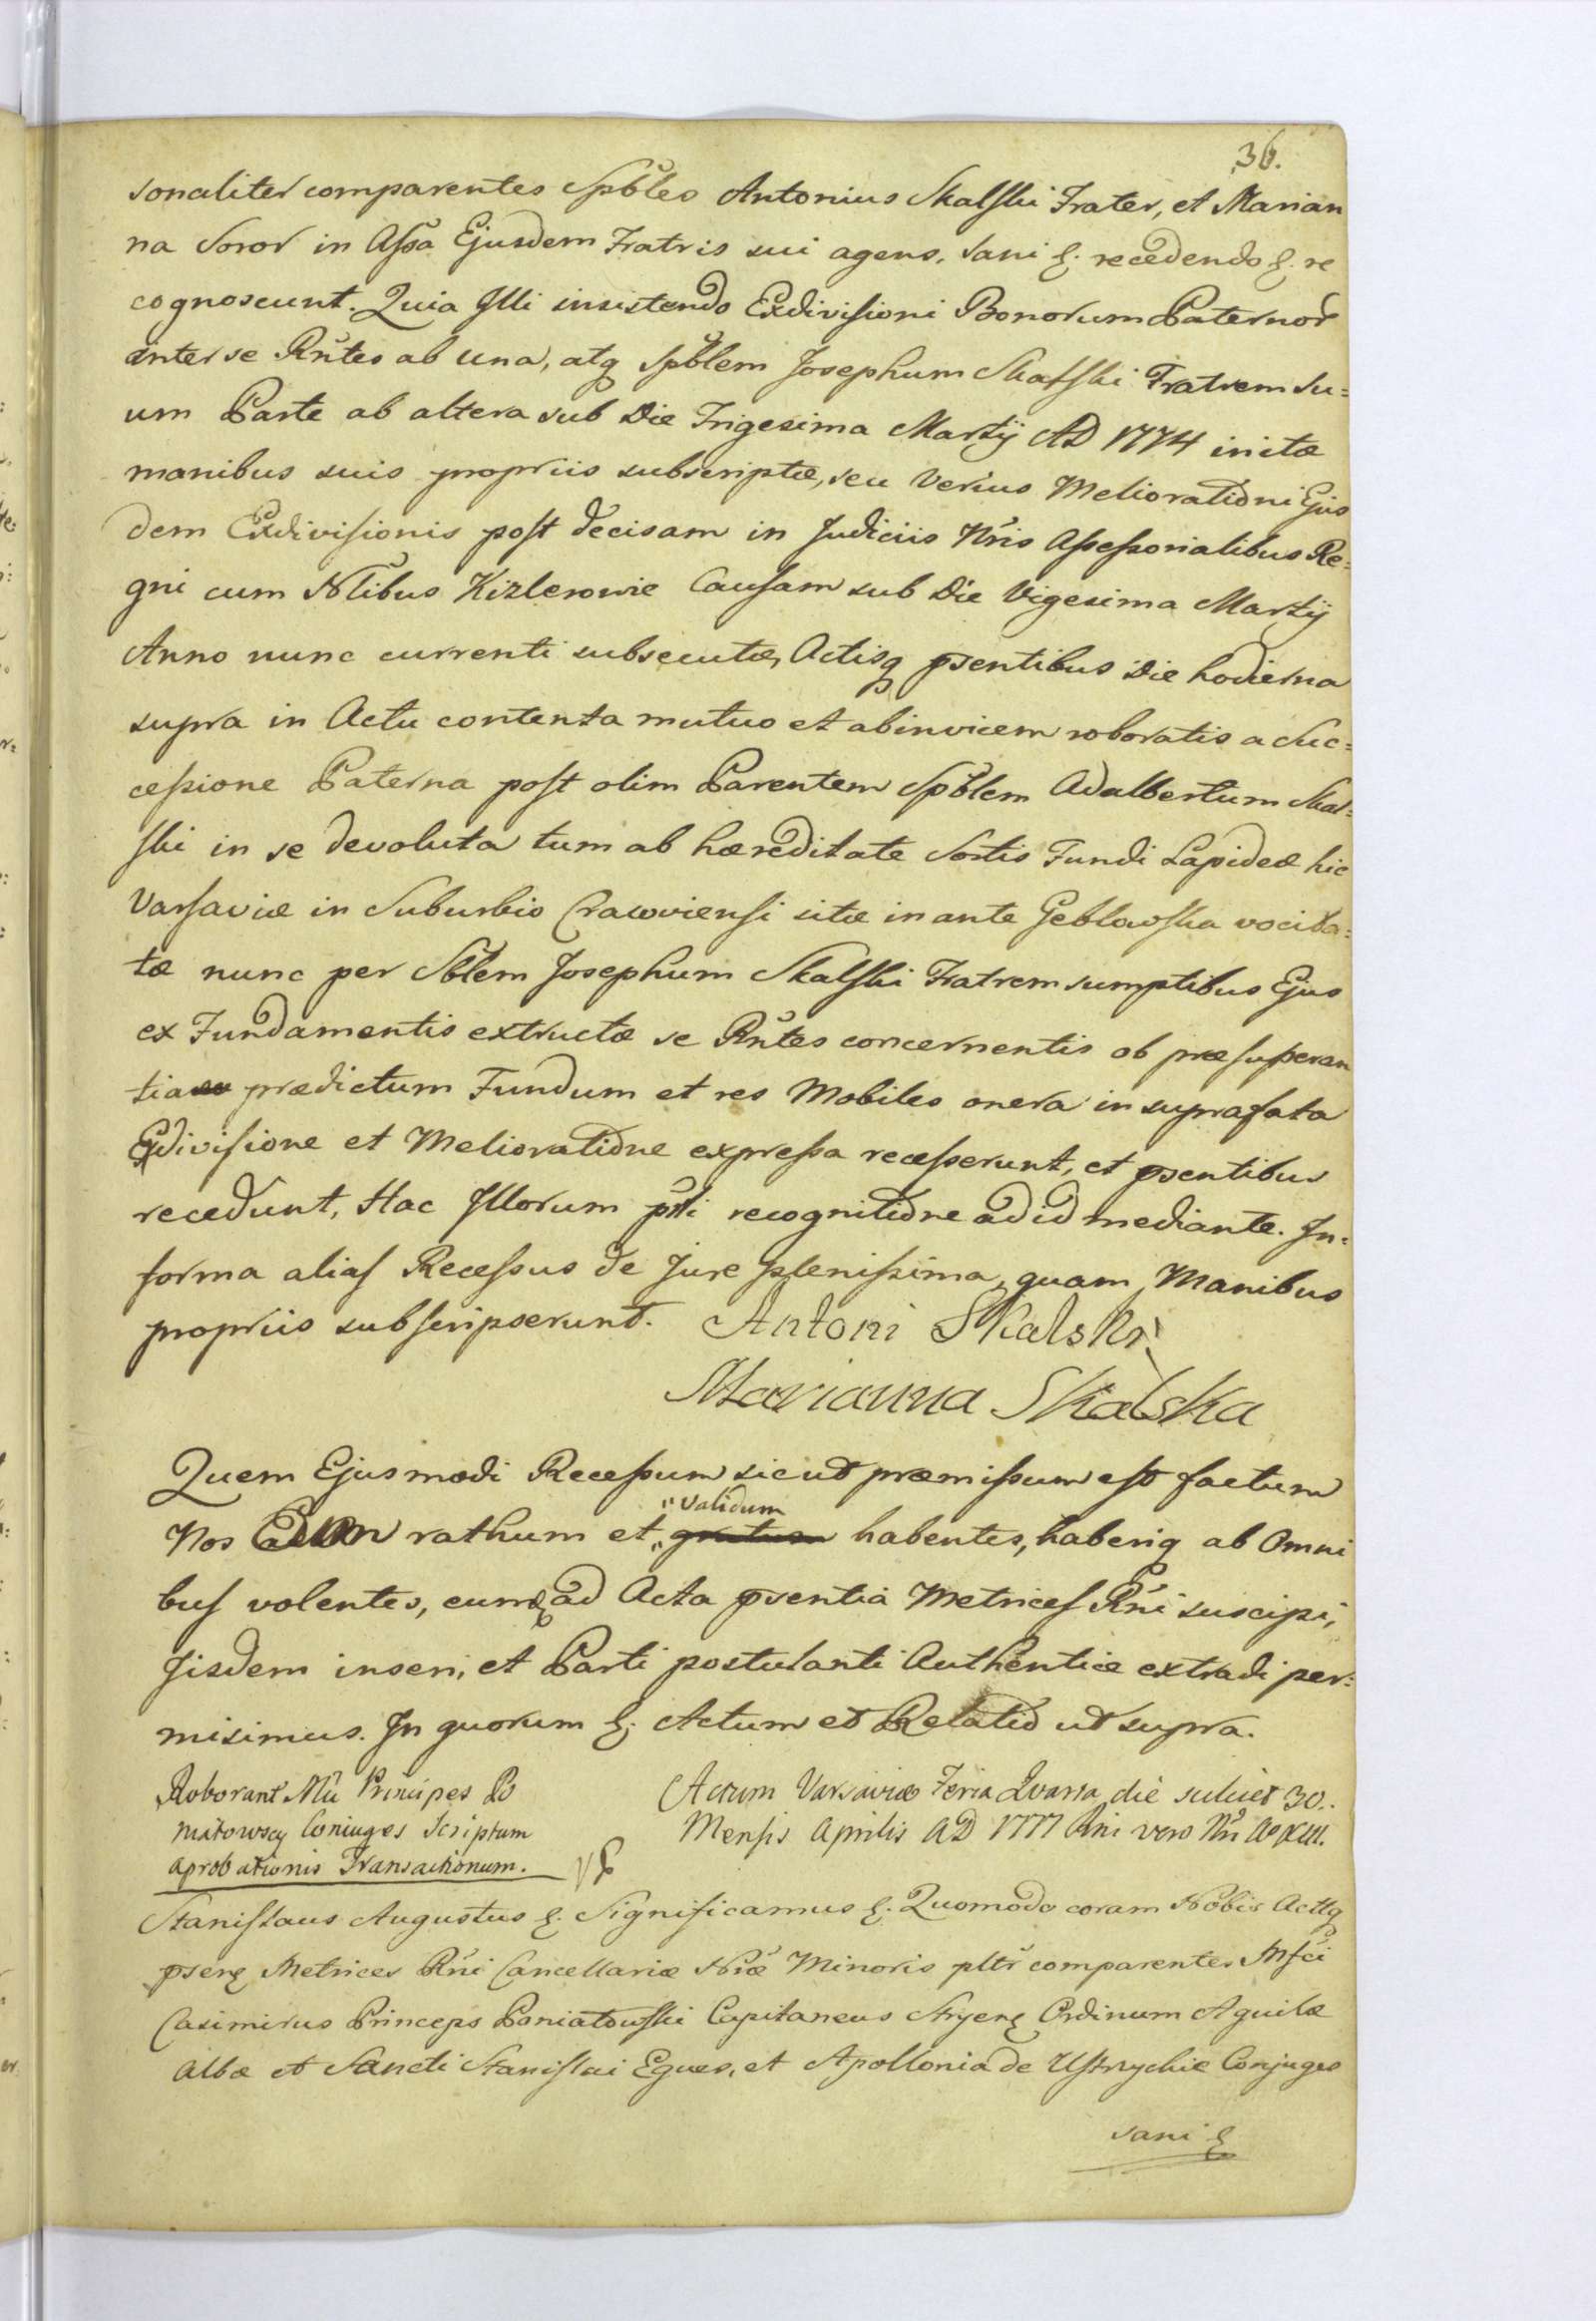 36.
sonaliter comparentes Spbles Antonius Skalski Frater, et Marian
na Soror in Assa Ejusdem Fratris sui agens, sani &. recedendo &. re
cognoscunt. Quia Illi insistendo Exdivisioni Bonorum Paternor
inter se Rntes ab una, atq Spblem Josephum Skalski Fratrem Su=
um Parte ab altera sub Die Trigesima Martij AD 1774 initæ
manibus suis propriis subscriptæ, seu verius Meliorationi Ejus
dem Exdivisionis post decisam in Judiciis Nris Assessorialibus Re=
gni cum Nlibus Kizlerowie Causam sub Die Vigesima Martij
Anno nunc currenti subsecutæ, Actisq psentibus Die hodierna
supra in Actu contenta mutuo et abinvicem roboratis a Suc=
cessione Paterna post olim Parentem Spblem Adalbertum Skal=
ski in se devoluta tum ab hæreditate Sortis Fundi Lapideæ hic
Varsaviæ in Suburbio Cracoviensi sitæ in ante Geblowska vocita=
tæ nunc per Sblem Josephum Skalski Fratrem sumptibus Ejus
ex Fundamentis extructæ se Rntes concernentis ob præsuperan
tia prædictum Fundum et res Mobiles onera in suprafata
Exdivisione et Melioratione expressa recesserunt, et psentibus
recedunt, Hac Illorum pnti recognitione ad id mediante. In=
forma alias Recessus de Jure plenissima, quam Manibus
propriis subscripserunt. Antoni Skalski
Marianna Skalska
Quem Ejusmodi Recessum sicut præmissum est factum
"validum
Nos rathum et „gratum habentes, haberiq ab Omni
bus volentes, eumq ad Acta psentia Metrices Rni suscipi,
Iisdem inseri, et Parti postulanti Authentice extradi per=
misimus. In quorum &. Actum et Relatio ut supra.
Roborant Mci Principes Po
niatowscy Coniuges Scriptum
aprobationis Transactionum.
Actum Varsaviæ Feria Quarta die scilicet 30..
Mensis Aprilis AD 1777 Rni vero Nri Ao XIII.
Stanislaus Augustus &. Significamus &. Quomodo coram Nobis Actisq
psen& Metrices Rni Cancellariæ Nræ Minoris pltr comparentes Mfci
Casimirus Princeps Poniatowski Capitaneus Stryen& Ordinum Aquilæ
Albæ et Sancti Stanislai Eques, et Apollonia de Ustrzyckie Conjuges
sani &